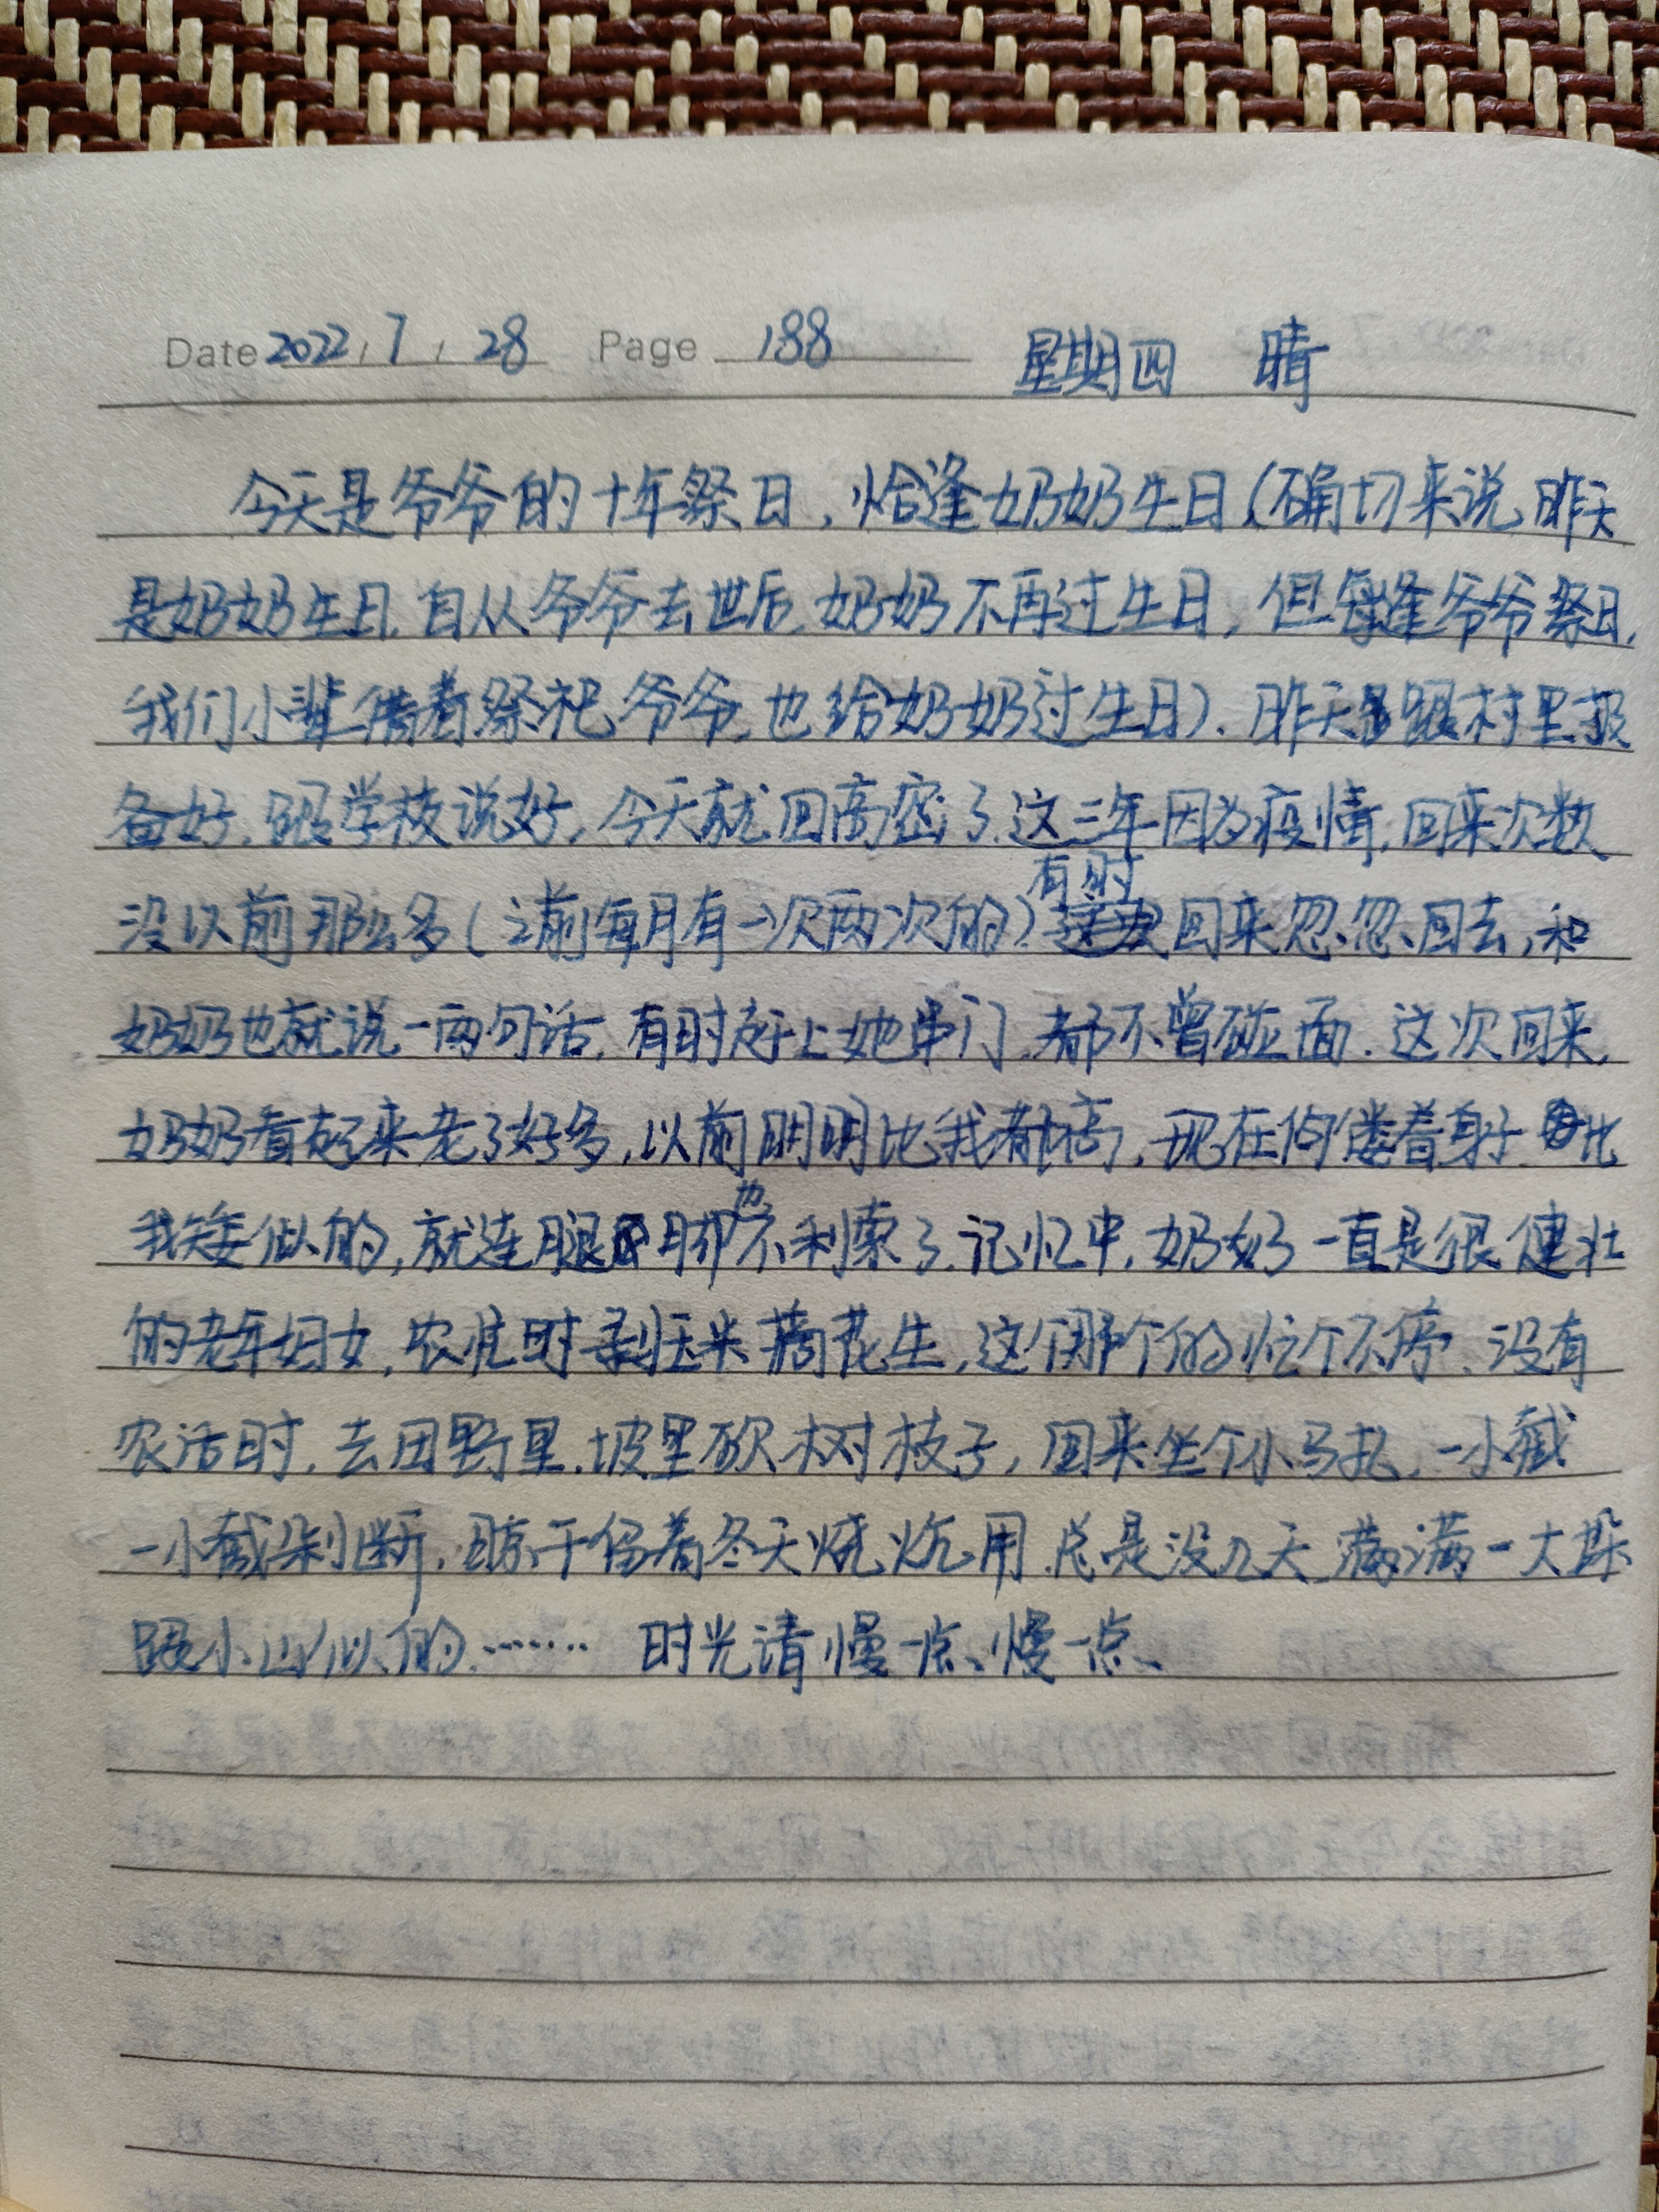 Date 2022 / 7 / 28 Page 188 星期四 晴
今天是爷爷的十年祭日，恰逢奶奶生日（确切来说，昨天
是奶奶生日，自从爷爷去世后，奶奶不再过生日，但每逢爷爷祭日，
我们小辈借着祭祀爷爷，也给奶奶过生日）．昨天跟村里报
备好，跟学校说好，今天就回高密了．这三年因为疫情，回来次数
没以前那么多（之前每月有一次两次的）．有时回来忽忽回去，和
奶奶也就说一两句话，有时赶上她串门，都不曾碰面．这次回来，
奶奶看起来老了好多，以前明明比我都高，现在佝偻着身子，比
我矮似的，就连腿脚也不利索了．记忆中，奶奶一直是很健壮
的老年妇女，农忙时剥玉米摘花生，这个那个的忙个不停．没有
农活时，去田野里，坡里砍树枝子，回来坐个小马扎，一小截
一小截剁断，晾干留着冬天烧炕用．总是没几天，满满一大垛
跟小山似的．…… 时光请慢一点、慢一点、